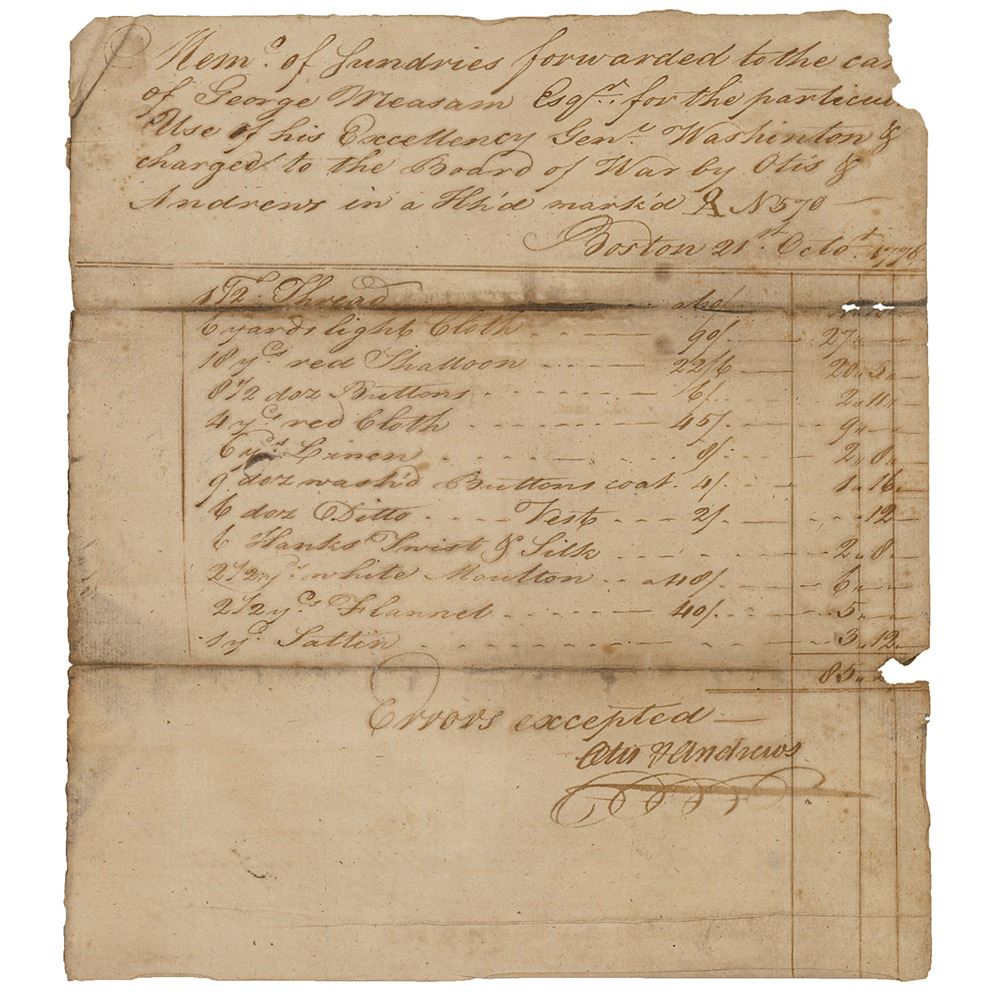 Memo. of Sundries forwarded to the car
of George Measam Esqr. for the particu
Use of his Excellency Genl. Washinton &
charged to the Board of War by Otis &
Andrews in a Hhd mark'd N 570
Boston 21st. Octor. 1778
Thread
6 yards light Cloth 90/. 27"
18 yds red Shalloon 22/6 20"5"
8 1/2 doz Buttons 6/. 2"11"
4 yds red Cloth 45/. 9"
6 yds. Linen 8/. 2"8"
9 doz wash'd Buttons coat 4/. 1"16"
6 doz Ditto Vest 2/. "12
6 Hanks Twist & Silk 2"8
2 1/2 yds. white Moulton a 48/. 6"
2 1/2 yds Flannel 40/. 5"
1 yd. Sattin 3"12
85"
Errors excepted
Otis & Andrews